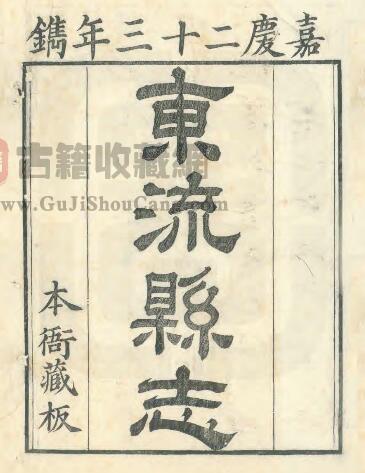 嘉慶二十三年鐫
東流縣志
本衙藏板
古籍收藏網
www.GuJiShouCang.com